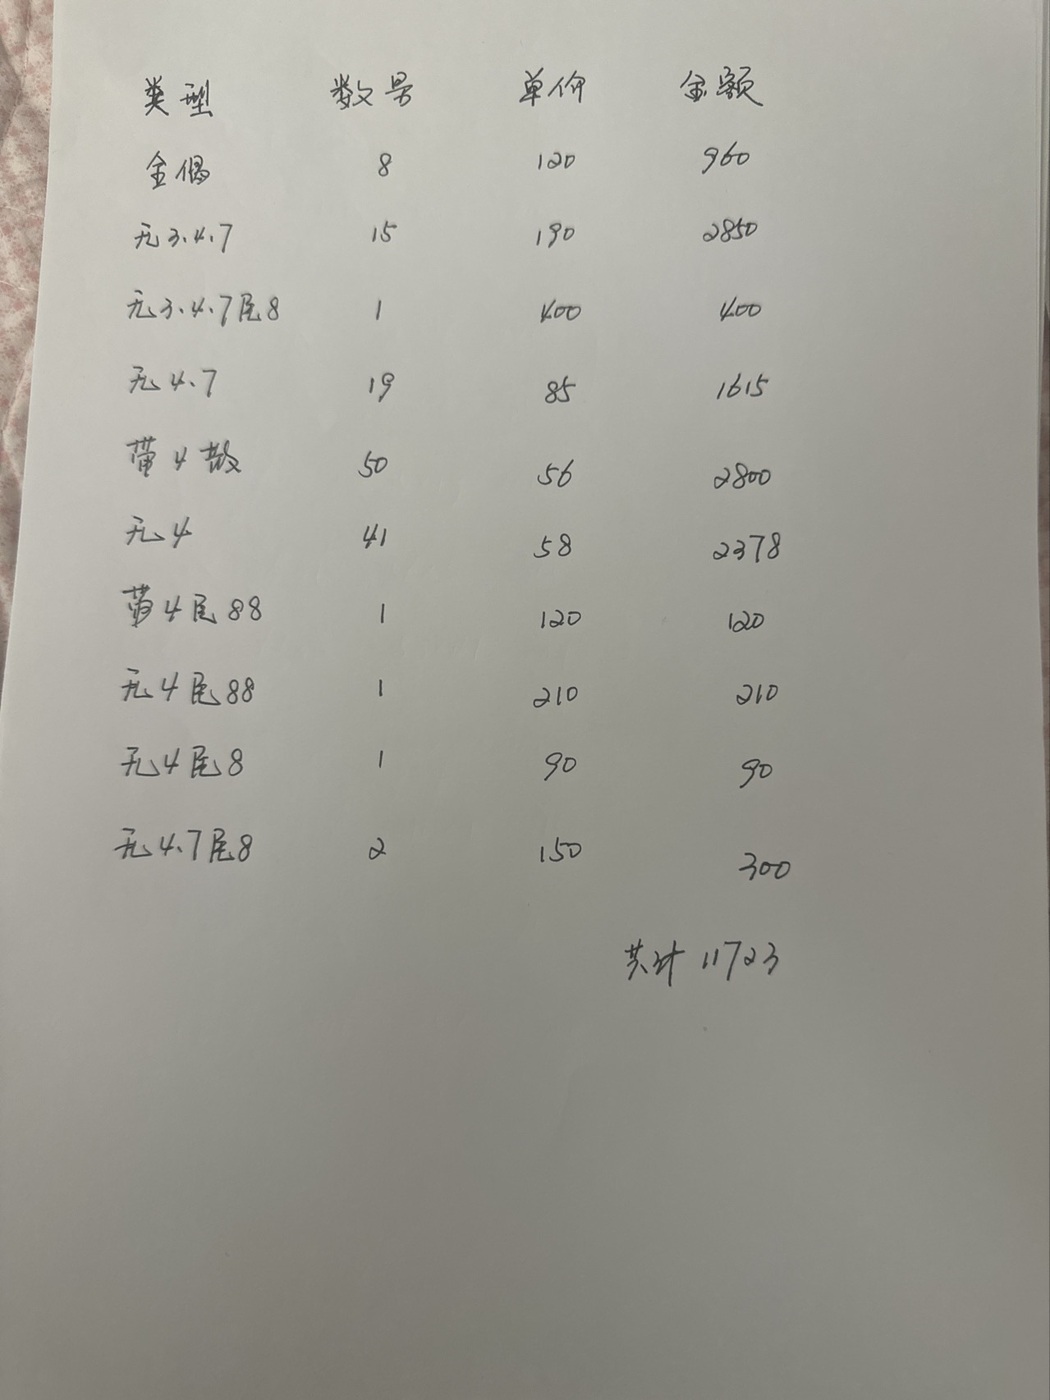 类型 数量 单价 金额
全偶 8 120 960
无3.4.7 15 190 2850
无3.4.7尾8 1 400 400
无4.7 19 85 1615
带4散 50 56 2800
无4 41 58 2378
带4尾88 1 120 120
无4尾88 1 210 210
无4尾8 1 90 90
无4.7尾8 2 150 300
共计 11723